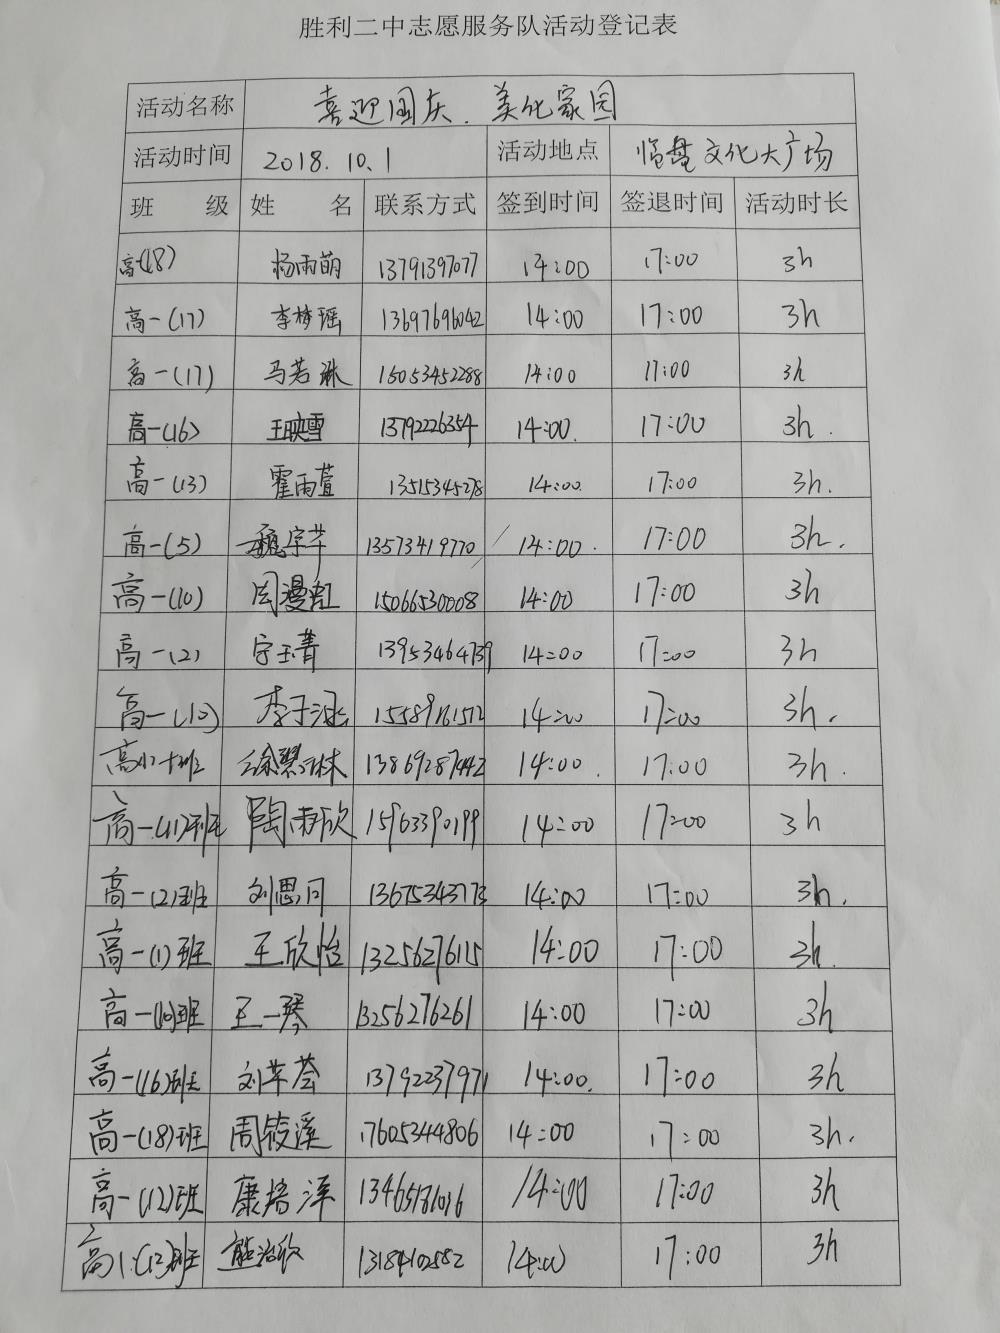 胜利二中志愿服务队活动登记表
活动名称 喜迎国庆.美化家园
活动时间 2018.10.1 活动地点 临盘文化大广场
班 级 姓 名 联系方式 签到时间 签退时间 活动时长
高一(18) 杨雨萌 13791397077 14:00 17:00 3h
高一(17) 李梦瑶 13697696042 14:00 17:00 3h
高一(17) 马若琳 15053452288 14:00 17:00 3h
高一(16) 王映雪 13792226354 14:00. 17:00 3h.
高一(13) 霍雨萱 13515345278 14:00. 17:00 3h.
高一(5) 魏宇芊 13573419770 14:00. 17:00 3h.
高一(10) 周漫虹 15066530008 14:00 17:00 3h
高一(2) 宁玉菁 13953464739 14:00 17:00 3h
高一(10) 李子涵 15589161512 14:00 17:00 3h.
高(1)十班 徐琳 13869287442 14:00. 17:00 3h.
高一(11)班 陶雨欣 15963390199 14:00 17:00 3h
高一(2)班 刘思同 13675343773 14:00 17:00 3h.
高一(1)班 王欣怡 13256276115 14:00 17:00 3h.
高一(10)班 王一琴 13256276261 14:00 17:00 3h
高一(16)班 刘芊荟 13792237971 14:00. 17:00 3h
高一(18)班 周筱溪 17605344806 14:00 17:00 3h.
高一(12)班 康培泽 14:00 17:00 3h
高1.(12)班 13184102582 14:00 17:00 3h